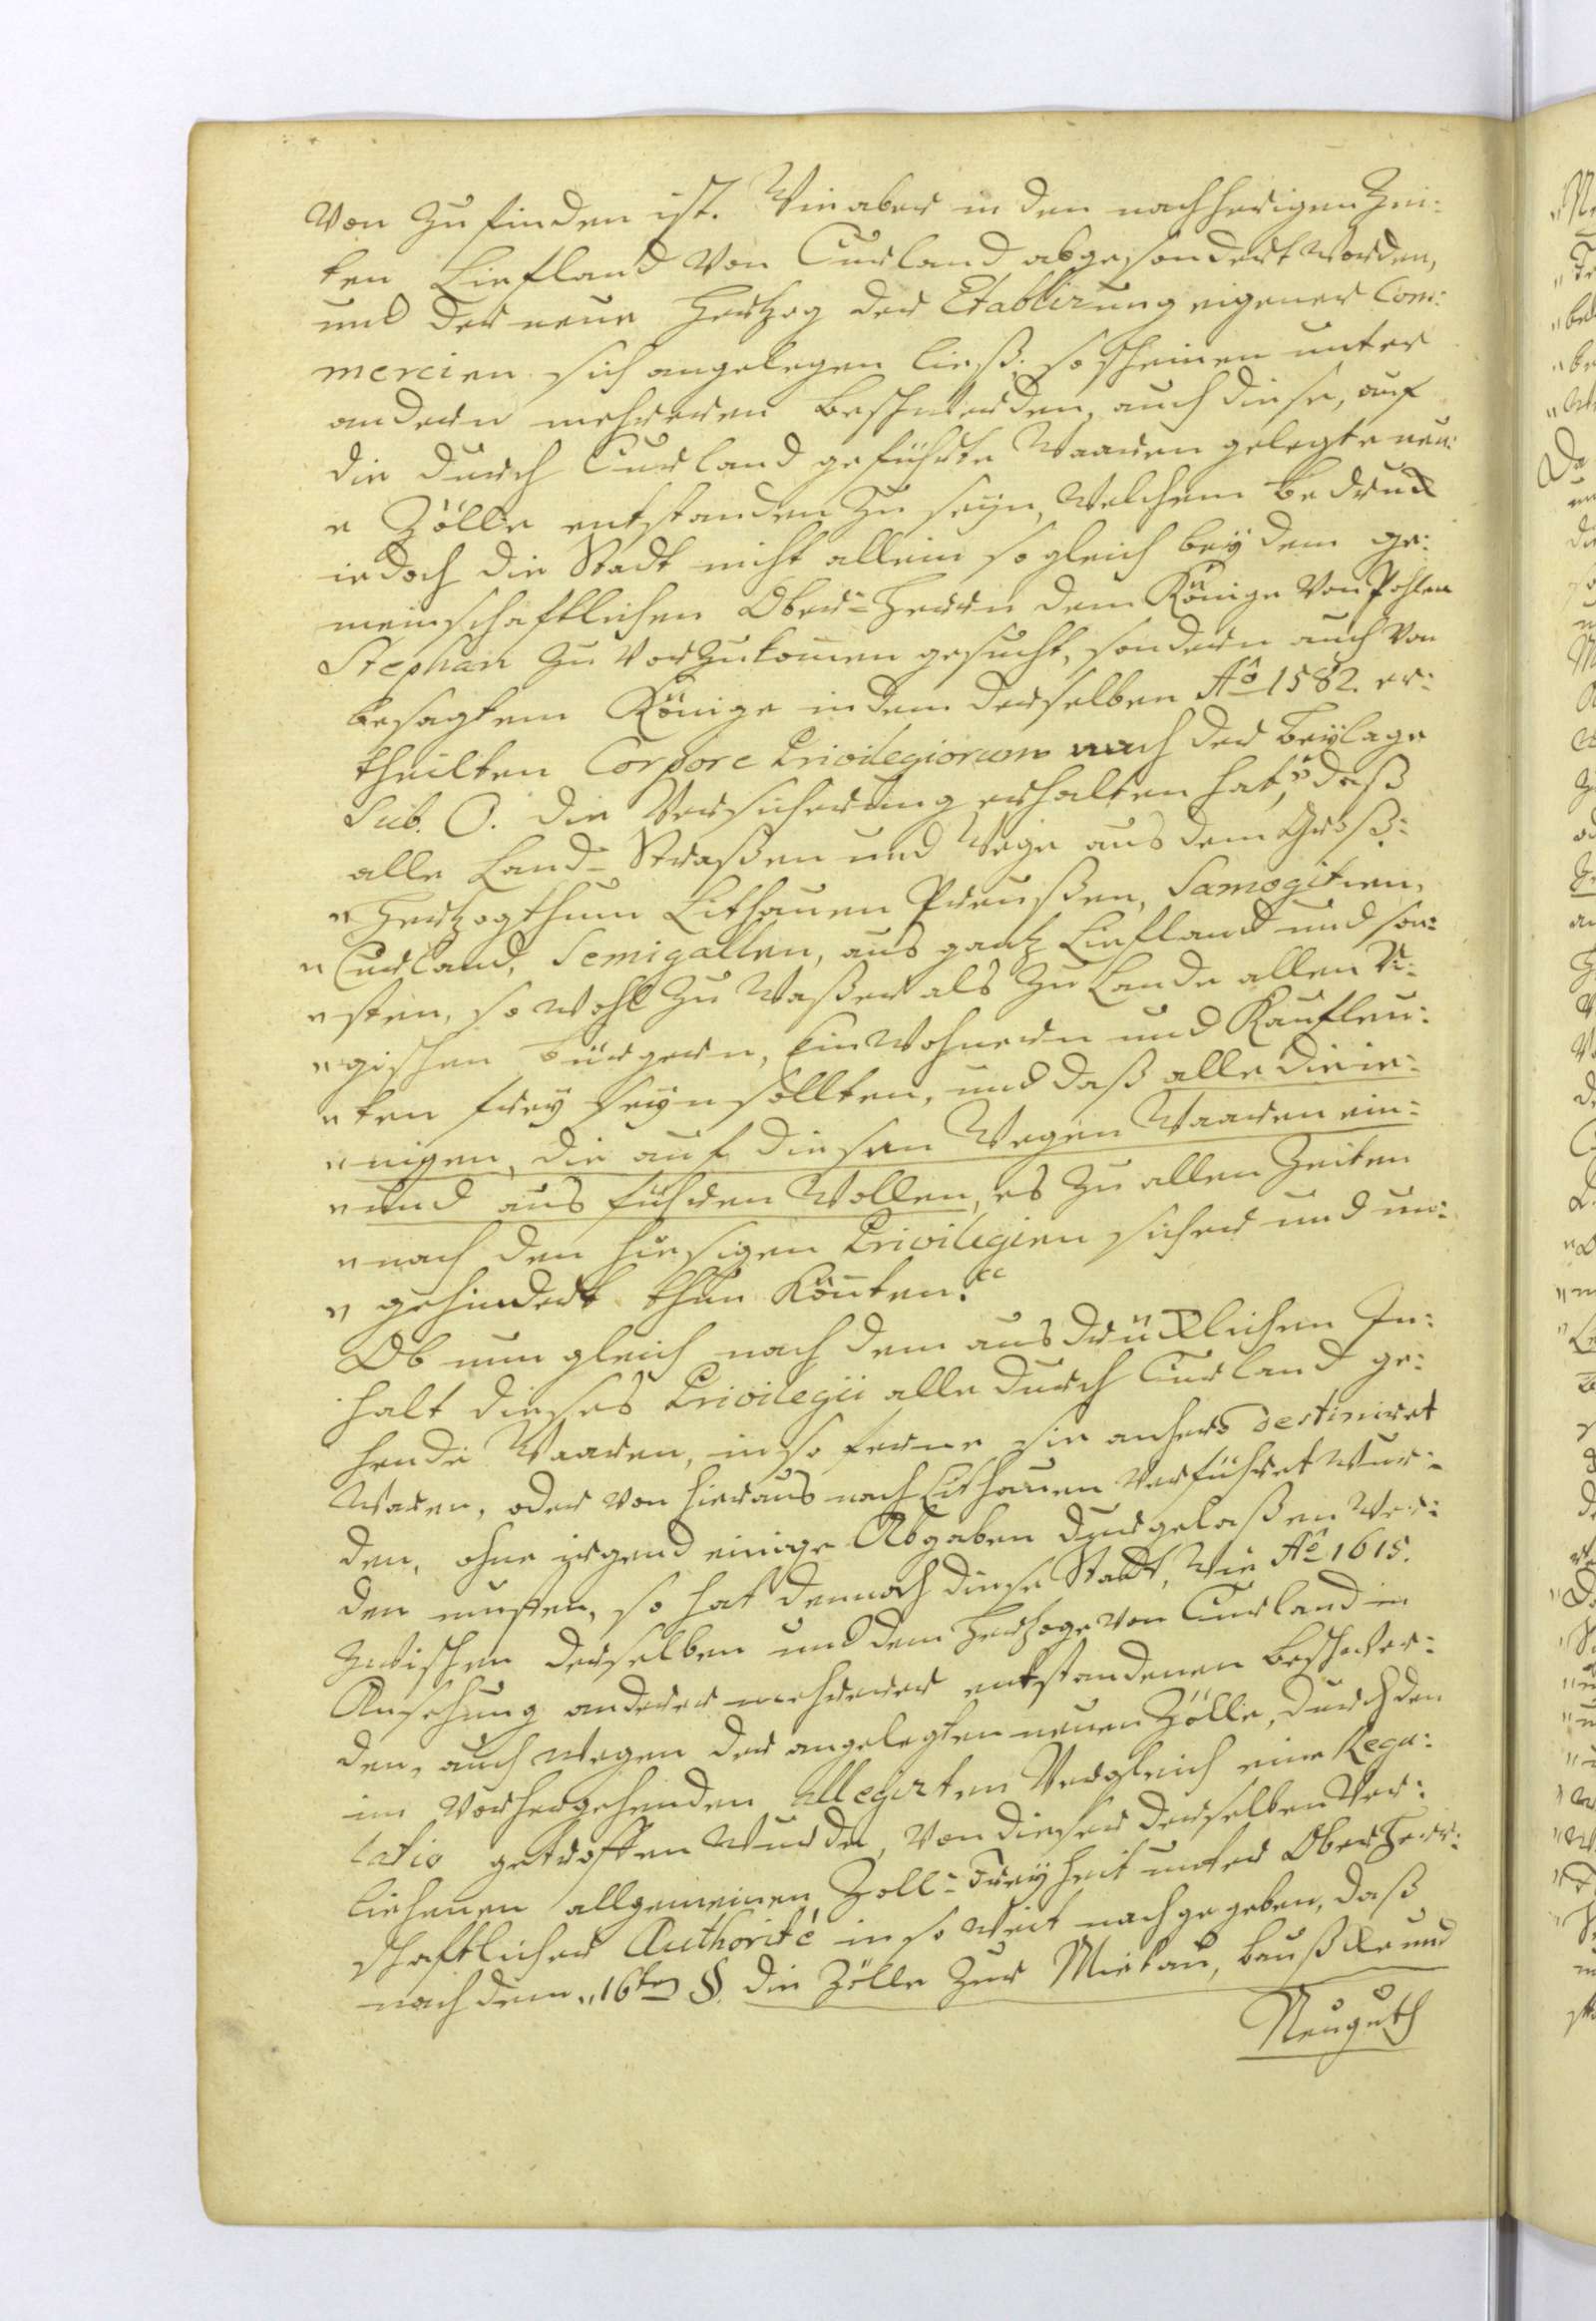 von zu finden ist. Wie aber in den nachherigen Zei:
ten Liefland von Curland abgesondert worden,
und der neue Hertzog der Etablirung eigener Com:
mercien sich angelegen ließ; so scheinen unter
andern mehreren Beschwerden, auch diese, auf
die durch Curland geführte Waaren gelegte neu:
e Zölle entstanden zu seyn, welchem Bedruck
iedoch die Stadt nicht allein so gleich bey dem ge:
meinschaftlichen Ober-Herrn dem Könige von Pohlen
Stephan zu vorzukomen gesucht, sondern auch von
besagtem Könige in dem derselben Aô 1582. er:
theilten Corpore Privilegiorum nach der Beylage
Sub. O. die Versicherung erhalten hat, „daß
alle Land-Straßen und Wege aus dem Groß:
„Hertzogthum Lithauen Preußen, Samogitien,
„Curland, Semigallen, aus gantz Liefland und son:
„sten, so wohl zu Waßer als zu Lande allen Ri:
„gischen Bürgern, Einwohnern und Kaufleu:
„ten frey seyn sollten, und daß alle dieie:
„nigen, die auf diesen Wegen Waaren ein:
„und aus führen wollen, es zu allen Zeiten
„nach den hiesigen Privilegien sicher und un:
„gehindert thun könten.“
Ob nun gleich nach dem ausdrücklichen In:
halt dieses Privilegii alle durch Curland ge:
hende Waaren, in so ferne sie anhero destiniret
waren, oder von hieraus nach Lithauen verführet wur:
den, ohne irgend einige Abgaben durgelaßen wer:
den musten, so hat dennoch diese Stadt, wie Aô 1615.
zwischen derselben und dem Hertzoge von Curland in
Ansehung anderer mehrerer entstandenen Beschwer:
den, auch wegen der angelegten neuen Zölle, durch den
im vorhergehenden allegirten Vergleich eine Regu:
latio getroffen wurde, von dieser derselben ver:
liehenen allgemeinen Zoll-Freyheit unter Oberherr:
schaftlicher Authorité in so weit nachgegeben, daß
nach dem „16ten §. die Zölle zur Mietau, Bauske und
Neuguth